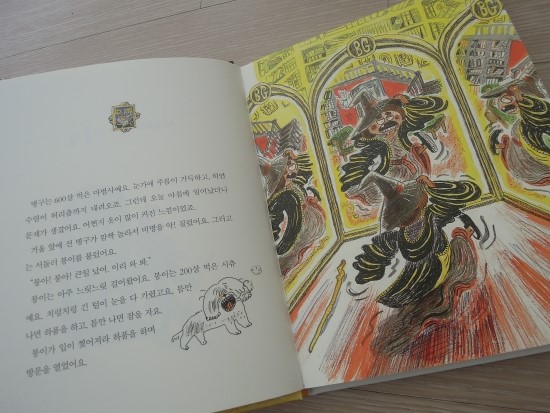 맹구는 600살 먹은 마법사예요. 눈가에 주름이 가득하고, 하얀
수염이 허리춤까지 내려오죠. 그런데 오늘 아침에 일어났더니
문제가 생겼어요. 어쩐지 옷이 많이 커진 느낌이었죠.
거울 앞에 선 맹구가 깜짝 놀라서 비명을 악! 질렀어요. 그리고
는 서둘러 봉이를 불렀어요.
"봉아! 봉아! 큰일 났어, 이리 와 봐."
봉이는 아주 느릿느릿 걸어왔어요. 봉이는 200살 먹은 시츄
예요. 치렁치렁 긴 털이 눈을 다 가렸고요. 틈만
나면 하품을 하고, 틈만 나면 잠을 자요.
봉이가 입이 찢어져라 하품을 하며
방문을 열었어요.
BG
BG
BG